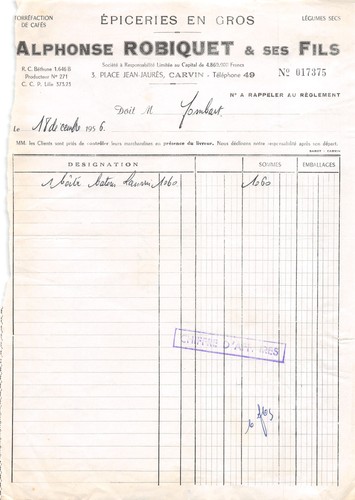 TORRÉFACTION
DE CAFÉS
ÉPICERIES EN GROS
LÉGUMES SECS
ALPHONSE ROBIQUET & SES FILS
Société à Responsabilité Limitée au Capital de 4.860.000 Francs
R. C. Béthune 1.646 B
Producteur N° 271
C. C. P. Lille 373.23
3, PLACE JEAN-JAURÈS, CARVIN - Téléphone 49
N° 017375
N° A RAPPELER AU RÈGLEMENT
Doit M Jombart
Le 18 décembre 1956.
MM. les Clients sont priés de contrôler leurs marchandises en présence du livreur. Nous déclinons notre responsabilité après son départ.
DESIGNATION SOMMES EMBALLAGES
1 boîte 1060 1060
CHIFFRE D'AFFAIRES